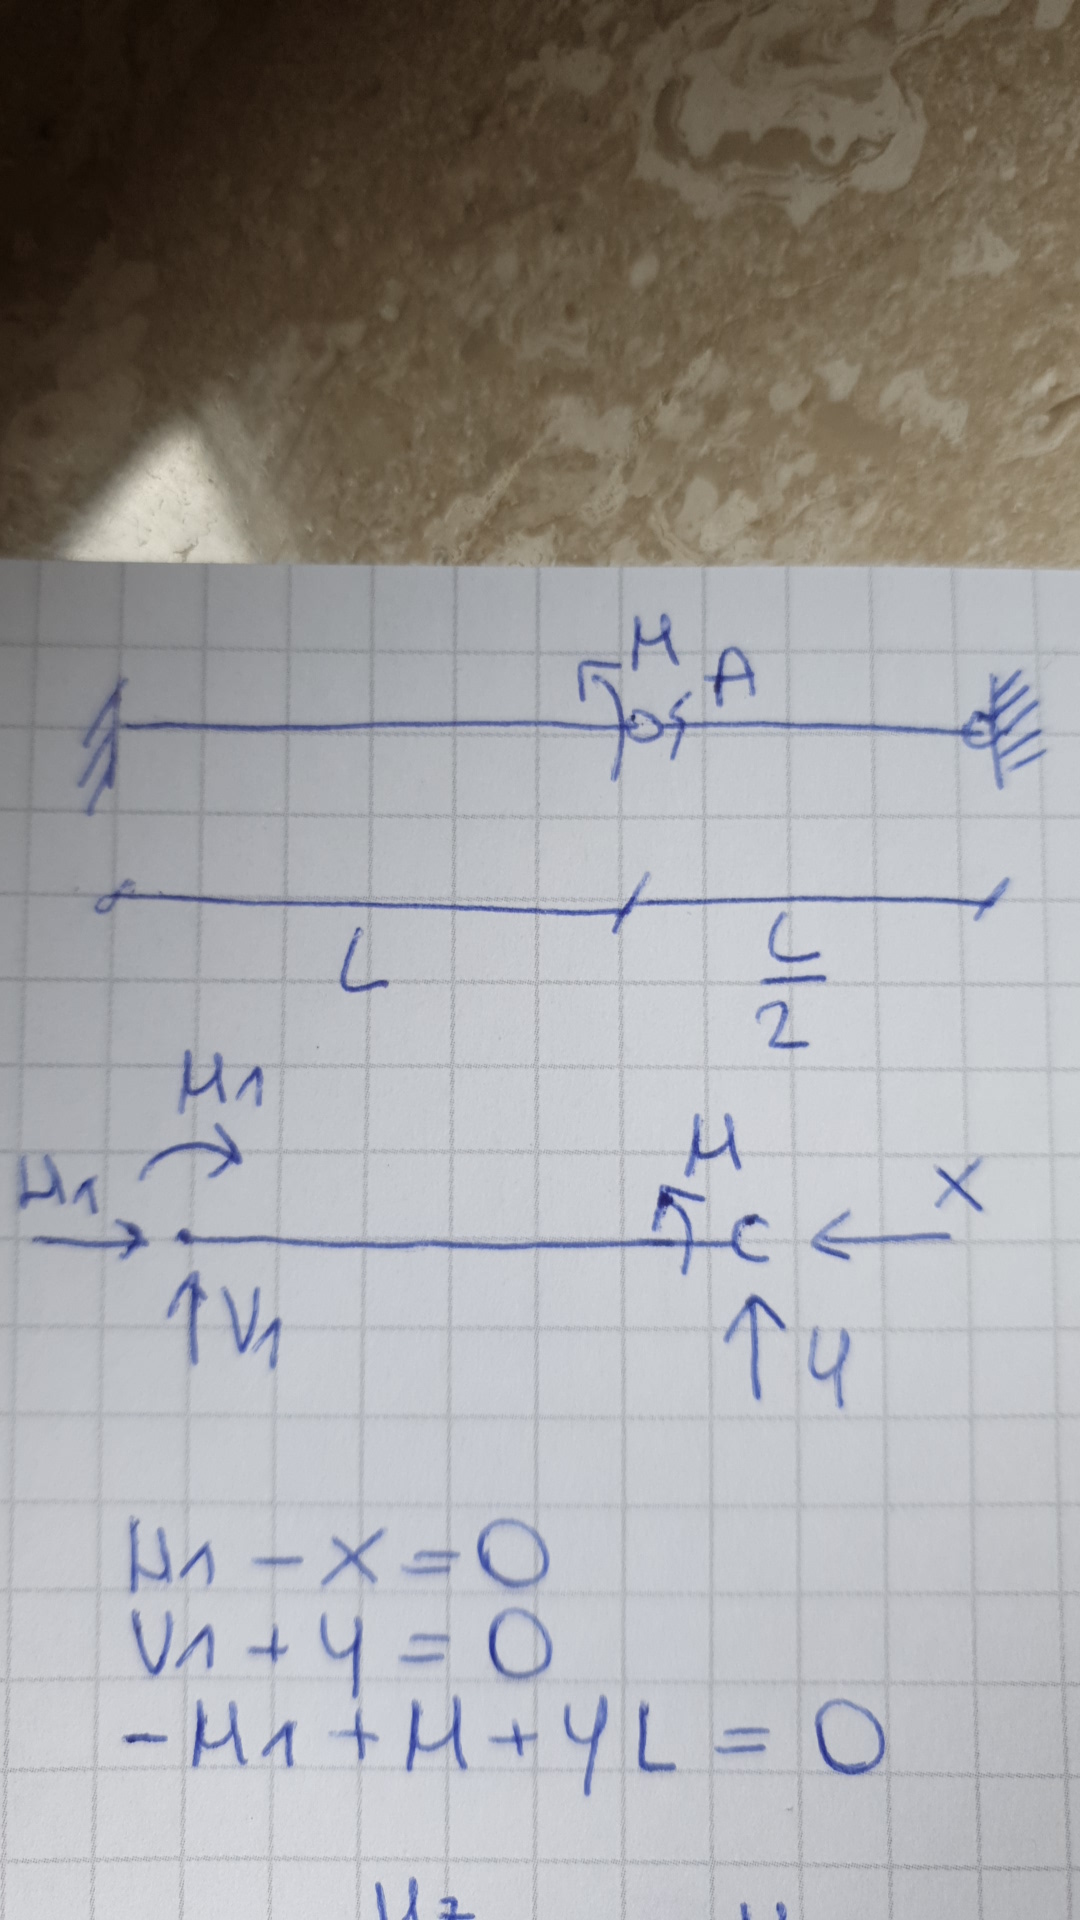 M
A
L
L
2
M1
H1
M
C
X
V1
y
H1 - X = 0
V1 + y = 0
-M1 + M + yL = 0